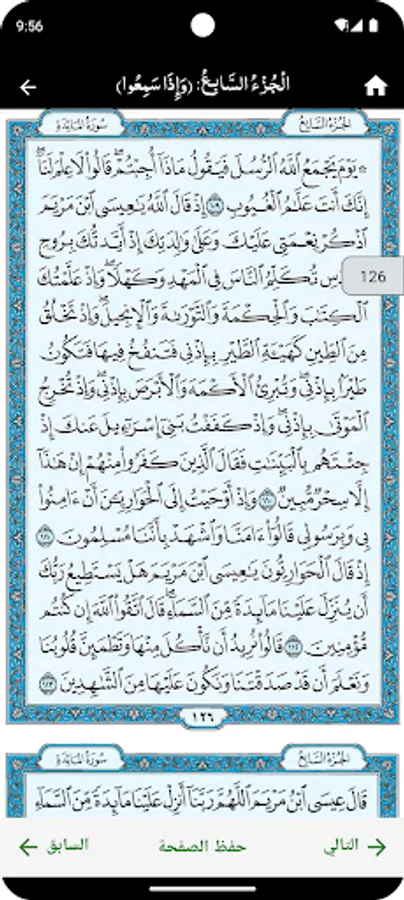 9:56
الْجُزْءُ السَّابِعُ: (وَإِذَا سَمِعُوا)
سُورَةُ المَائِدَةِ
الجُزءُ السَّابِعُ
۞ يَوْمَ يَجْمَعُ اللَّهُ الرُّسُلَ فَيَقُولُ مَاذَا أُجِبْتُمْ قَالُوا لَا عِلْمَ لَنَا
إِنَّكَ أَنتَ عَلَّامُ الْغُيُوبِ ١٠٩ إِذْ قَالَ اللَّهُ يَاعِيسَى ابْنَ مَرْيَمَ
اذْكُرْ نِعْمَتِي عَلَيْكَ وَعَلَى وَالِدَتِكَ إِذْ أَيَّدتُّكَ بِرُوحِ
تُكَلِّمُ النَّاسَ فِي الْمَهْدِ وَكَهْلًا وَإِذْ عَلَّمْتُكَ
126
الْكِتَابَ وَالْحِكْمَةَ وَالتَّوْرَاةَ وَالْإِنجِيلَ وَإِذْ تَخْلُقُ
مِنَ الطِّينِ كَهَيْئَةِ الطَّيْرِ بِإِذْنِي فَتَنفُخُ فِيهَا فَتَكُونُ
طَيْرًا بِإِذْنِي وَتُبْرِئُ الْأَكْمَهَ وَالْأَبْرَصَ بِإِذْنِي وَإِذْ تُخْرِجُ
الْمَوْتَى بِإِذْنِي وَإِذْ كَفَفْتُ بَنِي إِسْرَائِيلَ عَنكَ إِذْ
جِئْتَهُم بِالْبَيِّنَاتِ فَقَالَ الَّذِينَ كَفَرُوا مِنْهُمْ إِنْ هَذَا
إِلَّا سِحْرٌ مُّبِينٌ ١١٠ وَإِذْ أَوْحَيْتُ إِلَى الْحَوَارِيِّينَ أَنْ ءَامِنُوا
بِي وَبِرَسُولِي قَالُوا ءَامَنَّا وَاشْهَدْ بِأَنَّنَا مُسْلِمُونَ ١١١
إِذْ قَالَ الْحَوَارِيُّونَ يَاعِيسَى ابْنَ مَرْيَمَ هَلْ يَسْتَطِيعُ رَبُّكَ
أَن يُنَزِّلَ عَلَيْنَا مَائِدَةً مِّنَ السَّمَاءِ قَالَ اتَّقُوا اللَّهَ إِن كُنتُم
مُّؤْمِنِينَ ١١٢ قَالُوا نُرِيدُ أَن نَّأْكُلَ مِنْهَا وَتَطْمَئِنَّ قُلُوبُنَا
وَنَعْلَمَ أَن قَدْ صَدَقْتَنَا وَنَكُونَ عَلَيْهَا مِنَ الشَّاهِدِينَ ١١٣
١٢٦
سُورَةُ المَائِدَةِ
الجُزءُ السَّابِعُ
قَالَ عِيسَى ابْنُ مَرْيَمَ اللَّهُمَّ رَبَّنَا أَنزِلْ عَلَيْنَا مَائِدَةً مِّنَ السَّمَاءِ
التالي
حفظ الصفحة
السابق